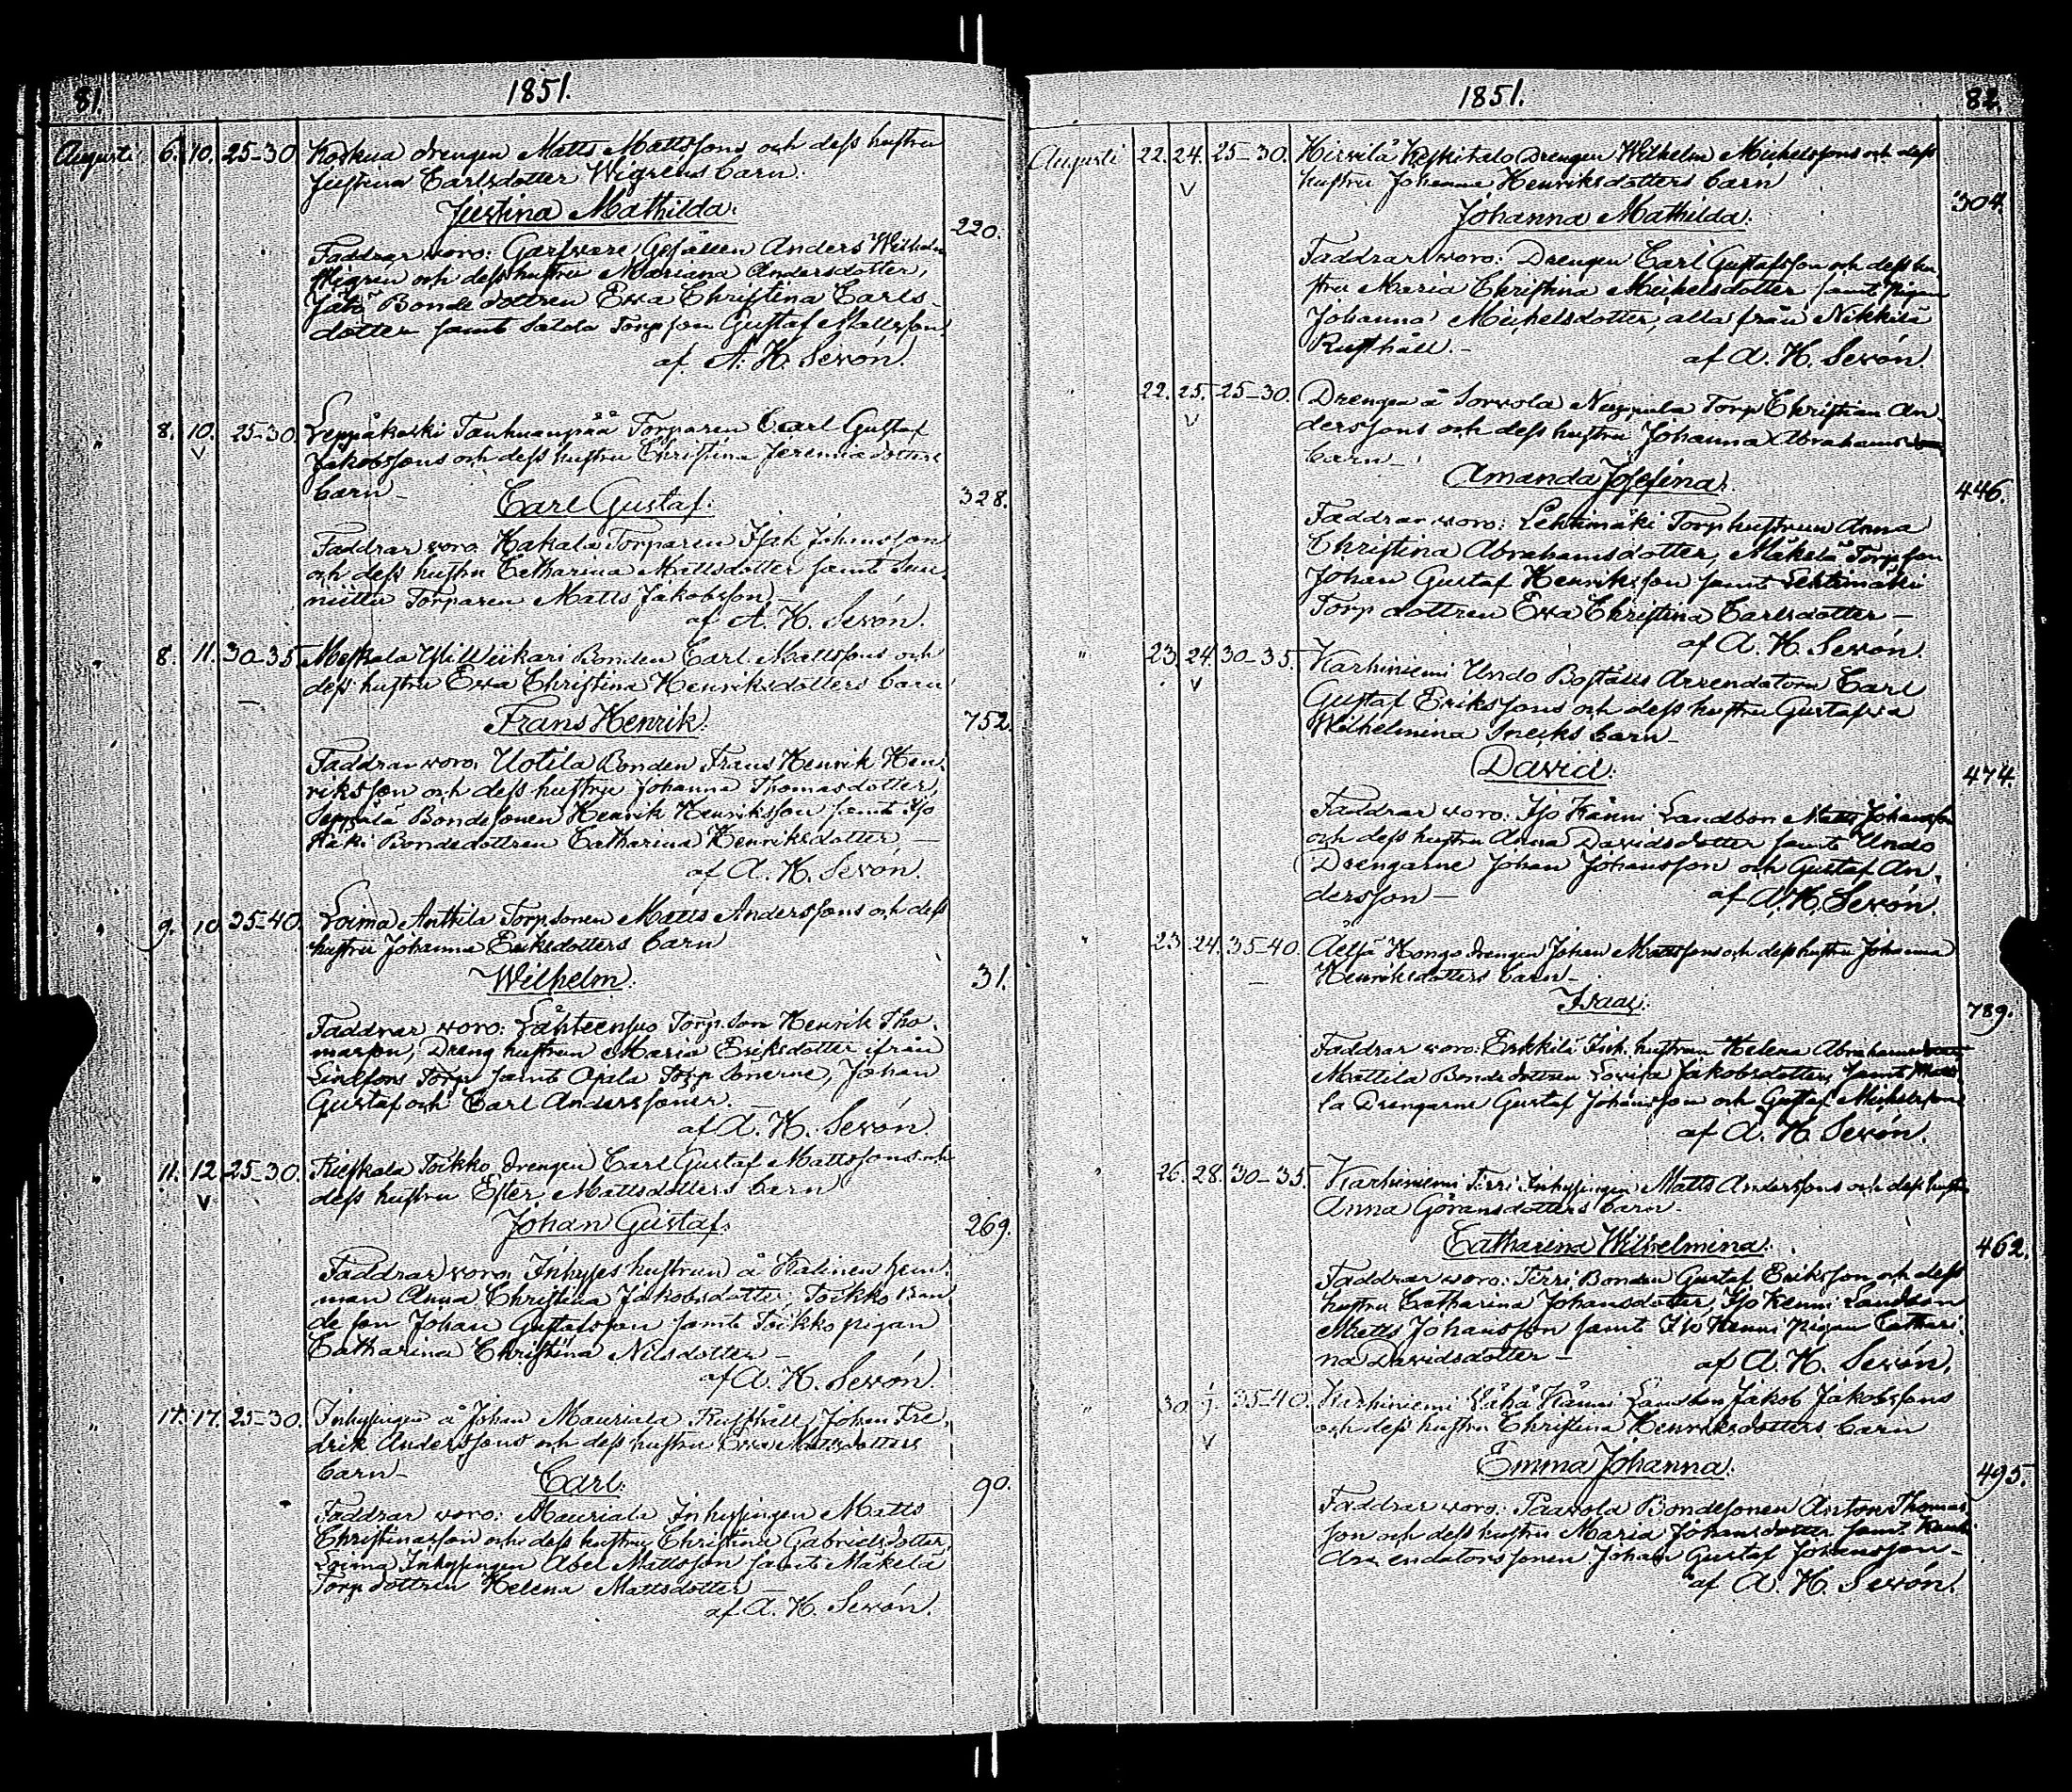 81. 1851.
Augusti 6. 10. 25-30 Koskua drengen Matts Mattssons och dess hustru
Justina Carlsdotter Wigrens barn.
Justina Mathilda. 220.
Faddrar woro: Garfvare Gesällen Anders Wilhelm
Wigren och dess hustru Mariana Andersdotter,
Bonde dottren Ewa Christina Carls-
dotter samt Torpson Gustaf Mattsson
af A. H. Sevón.
" 8. 10. 25-30. Leppäkoski Tanhuanpää Torparen Carl Gustaf
Jakobssons och dess hustru Christina Jeremiadotters
barn-
Carl Gustaf. 328.
Faddrar woro Hakala Torparen Isak Johansson
och dess hustru Catharina Mattsdotter samt Suu-
niittu Torparen Matts Jakobsson-
af A. H. Sevón.
" 8. 11. 30-35 Meskala Yli Wiikari Bonden Carl Mattssons och
dess hustru Ewa Christina Henriksdotters barn
Frans Henrik. 752.
Faddrar woro, Uotila Bonden Frans Henrik Hen-
riksson och dess hustru Johanna Thomasdotter,
Seppälä Bondesonen Henrik Henriksson samt Iso
Bondedottren Catharina Henriksdotter, -
af A. H. Sevón.
" 9. 10 35-40. Loima Anttila Torpsonen Matts Anderssons och dess
hustru Johanna Eriksdotters barn
Wilhelm. 31.
Faddrar woro: Lähteensuo Torp.son Henrik Tho-
masson, Dreng hustrun Maria Eriksdotter ifrån
Torp samt Ojala Torp sönerne, Johan
Gustaf och Carl Anderssöner.
af A. H. Sevón.
" 11. 12. 25-30. Rieskala Toikko drengen Carl Gustaf Mattssons och
dess hustru Ester Mattsdotters barn
Johan Gustaf. 269.
Faddrar woro, Inhyses hustrun å Kalinen hem-
man Anna Christina Jakobsdotter, Toikko Bon-
de son Johan Gustafsson samt Toikko pigan
Catharina Christina Nilsdotter-
af A. H. Sevón.
" 17. 17. 25-30. Inhysingen å Johan Mauriala Rusthåll, Johan Fre-
drik Anderssons och dess hustru Ewa Mattsdotters
barn-
Carl. 90.
Faddrar woro: Mauriala Inhysingen Matts
Christiansson och dess hustru Christina Gabrielsdotter,
Loima Inhysingen Abel Mattsson samt Mäkelä
Torp dottren Helena Mattsdotter-
af A. H. Sevón.
1851. 82.
Augusti 22. 24. 25-30. Hirvilä Keskitalo Drengen Wilhelm Michelssons och dess
hustru Johanna Henriksdotters barn
Johanna Mathilda. 304.
Faddrar woro: Drengen Carl Gustafsson och dess hu-
stru Maria Christina Michelsdotter samt Pigan
Johanna Michelsdotter, alla från Nikkilä
Rusthåll.-
af A. H. Sevón.
22. 25. 25-30. Drengen å Sorvola Torp Christian An-
derssons och dess hustru Johanna Abrahams
barn-
Amanda Josefina. 446.
Faddrar woro: Lehtimäki Torp hustrun Anna
Christina Abrahamsdotter, Mäkelä Torpson
Johan Gustaf Henriksson samt Lehtimäki
Torp dottren Ewa Christina Carlsdotter-
af A. H. Sevón.
" 23. 24. 30-35. Karhiniemi Undo Boställs Arrendatorn Carl
Gustaf Erikssons och dess hustru Gustafva
Wilhelmina barn-
David. 474.
Faddrar woro: Iso Känni Landbon Matts Johansson
och dess hustru Anna Davidsdotter samt Undo
Drengarne Johan Johansson och Gustaf An-
dersson-
af A. H. Sevón.
" 23. 24. 35-40. Hongo drengen Johan Mattssons och dess hustru Johanna
Henriksdotters barn-
Isaac. 789.
Faddrar woro: Erkkilä Inh. hustrun Helena Abrahams
Mattila Bonde dottren Lovisa Jakobsdotter, samt
la Drengarne Gustaf Johansson och Gustaf Michelsson
af A. H. Sevón.
" 26. 28. 30-35. Karhiniemi Tirri Inhysingen Matts Anderssons och dess hustru
Anna Göransdotters barn-
Catharina Wilhelmina. 462.
Faddrar woro: Tirri Bonden Gustaf Eriksson och dess
hustru Catharina Johansdotter, Iso Kenni Landbon
Matts Johansson samt Iso Kenni Pigan Cathari-
na Davidsdotter-
af A. H. Sevón.
" 30. 1/9. 35-40. Karhiniemi Vähä Känni Landbon Jakob Jakobssons
och dess hustru Christina Henriksdotters barn
Emma Johanna. 495.
Faddrar woro: Paavola Bondesonen Anton Thomas-
son och dess hustru Maria Johansdotter samt
Arrendators sonen Johan Gustaf Johansson-
af A. H. Sevón.